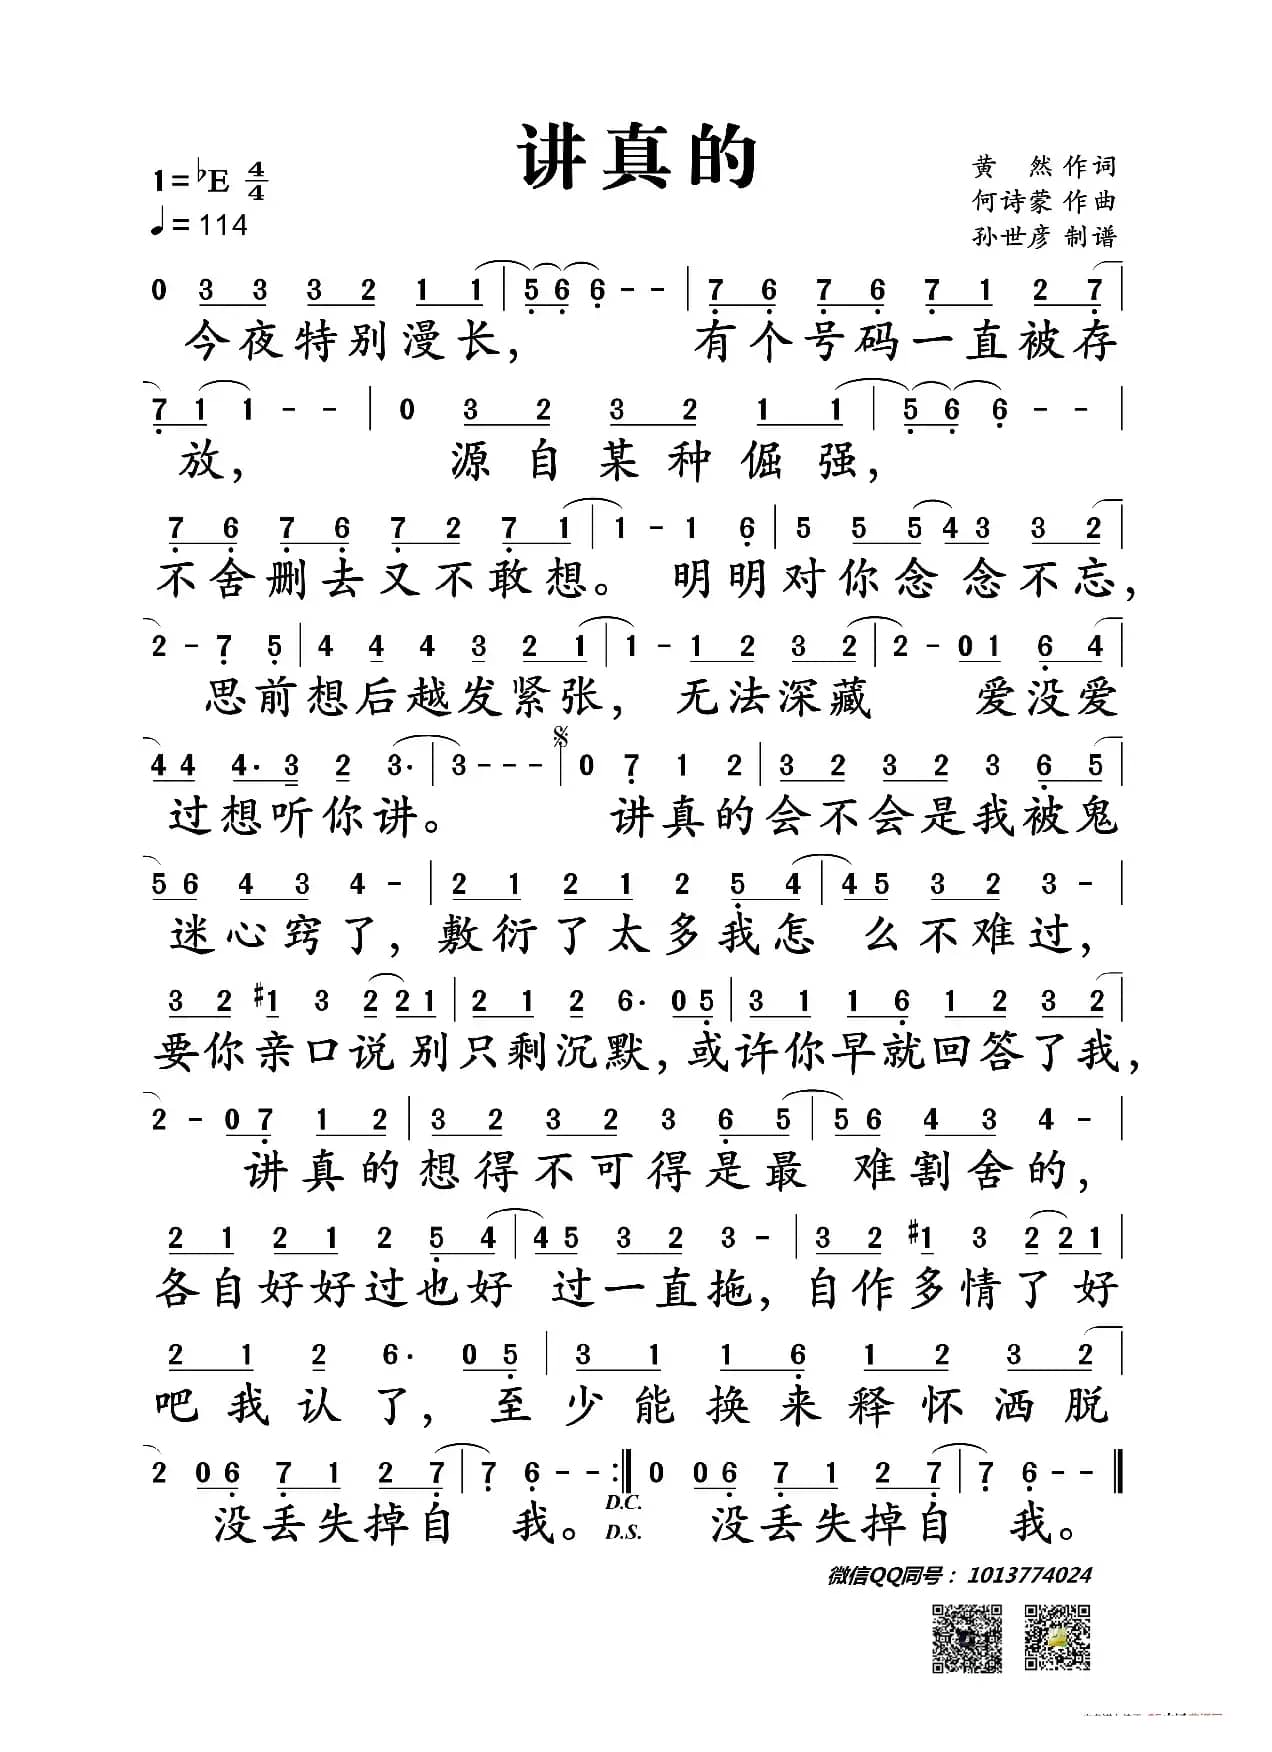 讲真的
1=♭E 4/4
♩= 114
黄 然 作词
何诗蒙 作曲
孙世彦 制谱
0 3 3 3 2 1 1 | 5 6 6 - - | 7 6 7 6 7 1 2 7 |
今夜特别漫长， 有个号码一直被存
7 1 1 - - | 0 3 2 3 2 1 1 | 5 6 6 - - |
放， 源自某种倔强，
7 6 7 6 7 2 7 1 | 1 - 1 6 | 5 5 5 4 3 3 2 |
不舍删去又不敢想。 明明对你念 念不忘，
2 - 7 5 | 4 4 4 3 2 1 | 1 - 1 2 3 2 | 2 - 0 1 6 4 |
思前想后越发紧张， 无法深藏 爱没爱
4 4 4· 3 2 3· | 3 - - - | 0 7 1 2 | 3 2 3 2 3 6 5 |
过想听你讲。 讲真的会不会是我被鬼
5 6 4 3 4 - | 2 1 2 1 2 5 4 | 4 5 3 2 3 - |
迷心窍了，敷衍了太多我怎 么不难过，
3 2 #1 3 2 2 1 | 2 1 2 6· 0 5 | 3 1 1 6 1 2 3 2 |
要你亲口说别只剩沉默，或许你早就回答了我，
2 - 0 7 1 2 | 3 2 3 2 3 6 5 | 5 6 4 3 4 - |
讲真的想得不可得是最 难割舍的，
2 1 2 1 2 5 4 | 4 5 3 2 3 - | 3 2 #1 3 2 2 1 |
各自好好过也好 过一直拖，自作多情了好
2 1 2 6· 0 5 | 3 1 1 6 1 2 3 2 |
吧我认了， 至少能换来释怀洒脱
2 0 6 7 1 2 7 | 7 6 - - :‖ 0 0 6 7 1 2 7 | 7 6 - - ‖
没丢失掉自 我。D.C. D.S. 没丢失掉自 我。
微信QQ同号： 1013774024